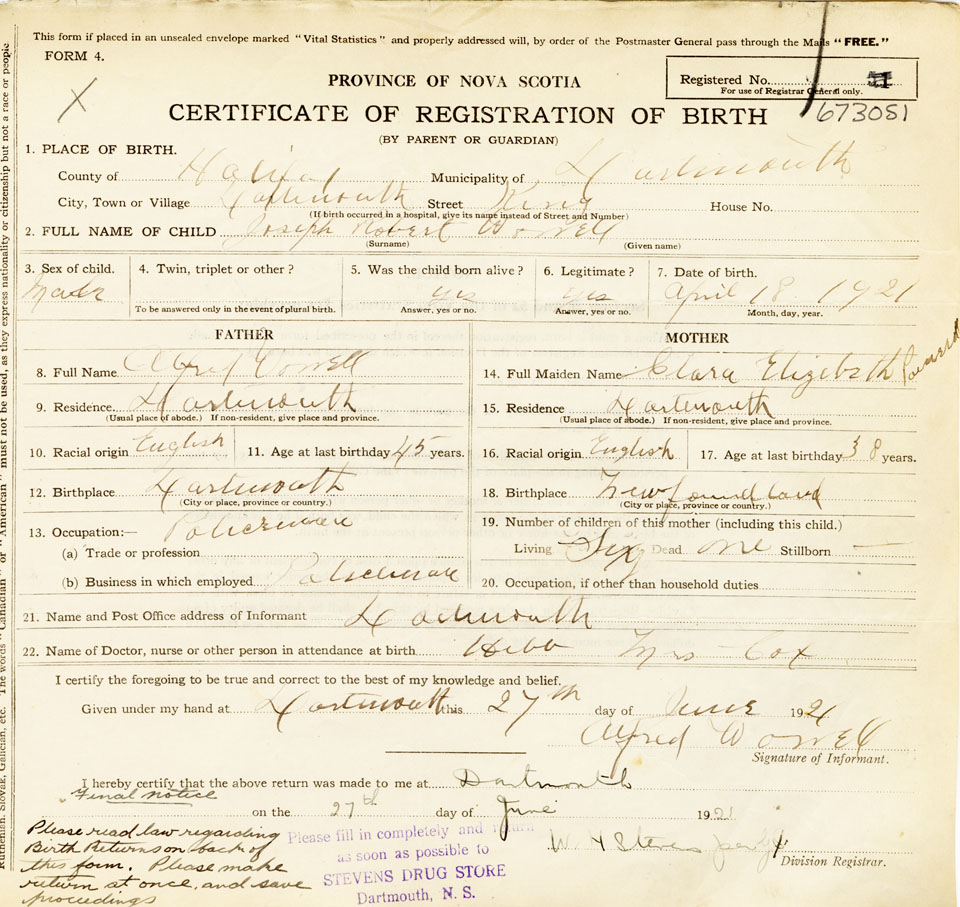 This form if placed in an unsealed envelope marked "Vital Statistics" and properly addressed will, by order of the Postmaster General pass through the Mails "FREE."
FORM 4.
PROVINCE OF NOVA SCOTIA
Registered No.
For use of Registrar General only.
673081
CERTIFICATE OF REGISTRATION OF BIRTH
(BY PARENT OR GUARDIAN)
1. PLACE OF BIRTH.
County of Halifax Municipality of Dartmouth
City, Town or Village Dartmouth Street King House No.
(If birth occurred in a hospital, give its name instead of Street and Number)
2. FULL NAME OF CHILD Joseph Robert Worrell
(Surname) (Given name)
3. Sex of child. 4. Twin, triplet or other? 5. Was the child born alive? 6. Legitimate? 7. Date of birth.
Male yes yes April 18 1921
To be answered only in the event of plural birth. Answer, yes or no. Answer, yes or no. Month, day, year.
FATHER MOTHER
8. Full Name Alfred Worrell 14. Full Maiden Name Clara Elizibeth
9. Residence Dartmouth 15. Residence Dartmouth
(Usual place of abode.) If non-resident, give place and province. (Usual place of abode.) If non-resident, give place and province.
10. Racial origin English 11. Age at last birthday 45 years. 16. Racial origin English 17. Age at last birthday 38 years.
12. Birthplace Dartmouth 18. Birthplace Newfoundland
(City or place, province or country.) (City or place, province or country.)
13. Occupation:— Policeman 19. Number of children of this mother (including this child.)
(a) Trade or profession Living Six Dead one Stillborn —
(b) Business in which employed Policeman 20. Occupation, if other than household duties
21. Name and Post Office address of Informant Dartmouth
22. Name of Doctor, nurse or other person in attendance at birth. Hebb Mrs Cox
I certify the foregoing to be true and correct to the best of my knowledge and belief.
Given under my hand at Dartmouth this 27th day of June 1921
Alfred Worrell
Signature of Informant.
I hereby certify that the above return was made to me at Dartmouth
Final notice
on the 27th day of June 1921
W. H Stevens
Division Registrar.
Please read law regarding
Birth Returns on back of
this form. Please make
return at once, and save
proceedings
Please fill in completely and return
as soon as possible to
STEVENS DRUG STORE
Dartmouth, N. S.
Ruthenian, Slovak, Galician, etc. The words "Canadian" or "American" must not be used, as they express nationality or citizenship but not a race or people